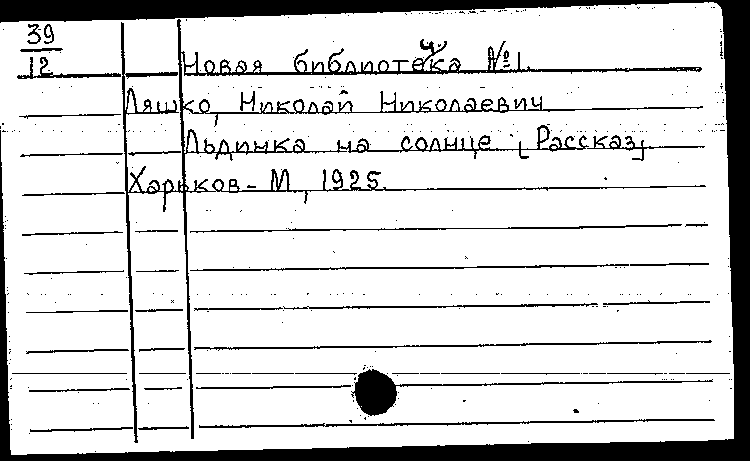 39
12
Новая библиотечка №1.
Ляшко, Николай Николаевич
Льдинка на солнце [Рассказ]
Харьков - М., 1925.